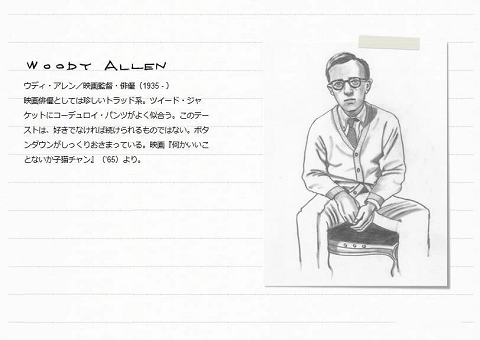 WOODY ALLEN
ウディ・アレン／映画監督・俳優（1935 - ）
映画俳優としては珍しいトラッド系。ツイード・ジャ
ケットにコーデュロイ・パンツがよく似合う。このテー
ストは、好きでなければ続けられるものではない。ボタ
ンダウンがしっくりおさまっている。映画『何かいいこ
とないか子猫チャン』（'65）より。